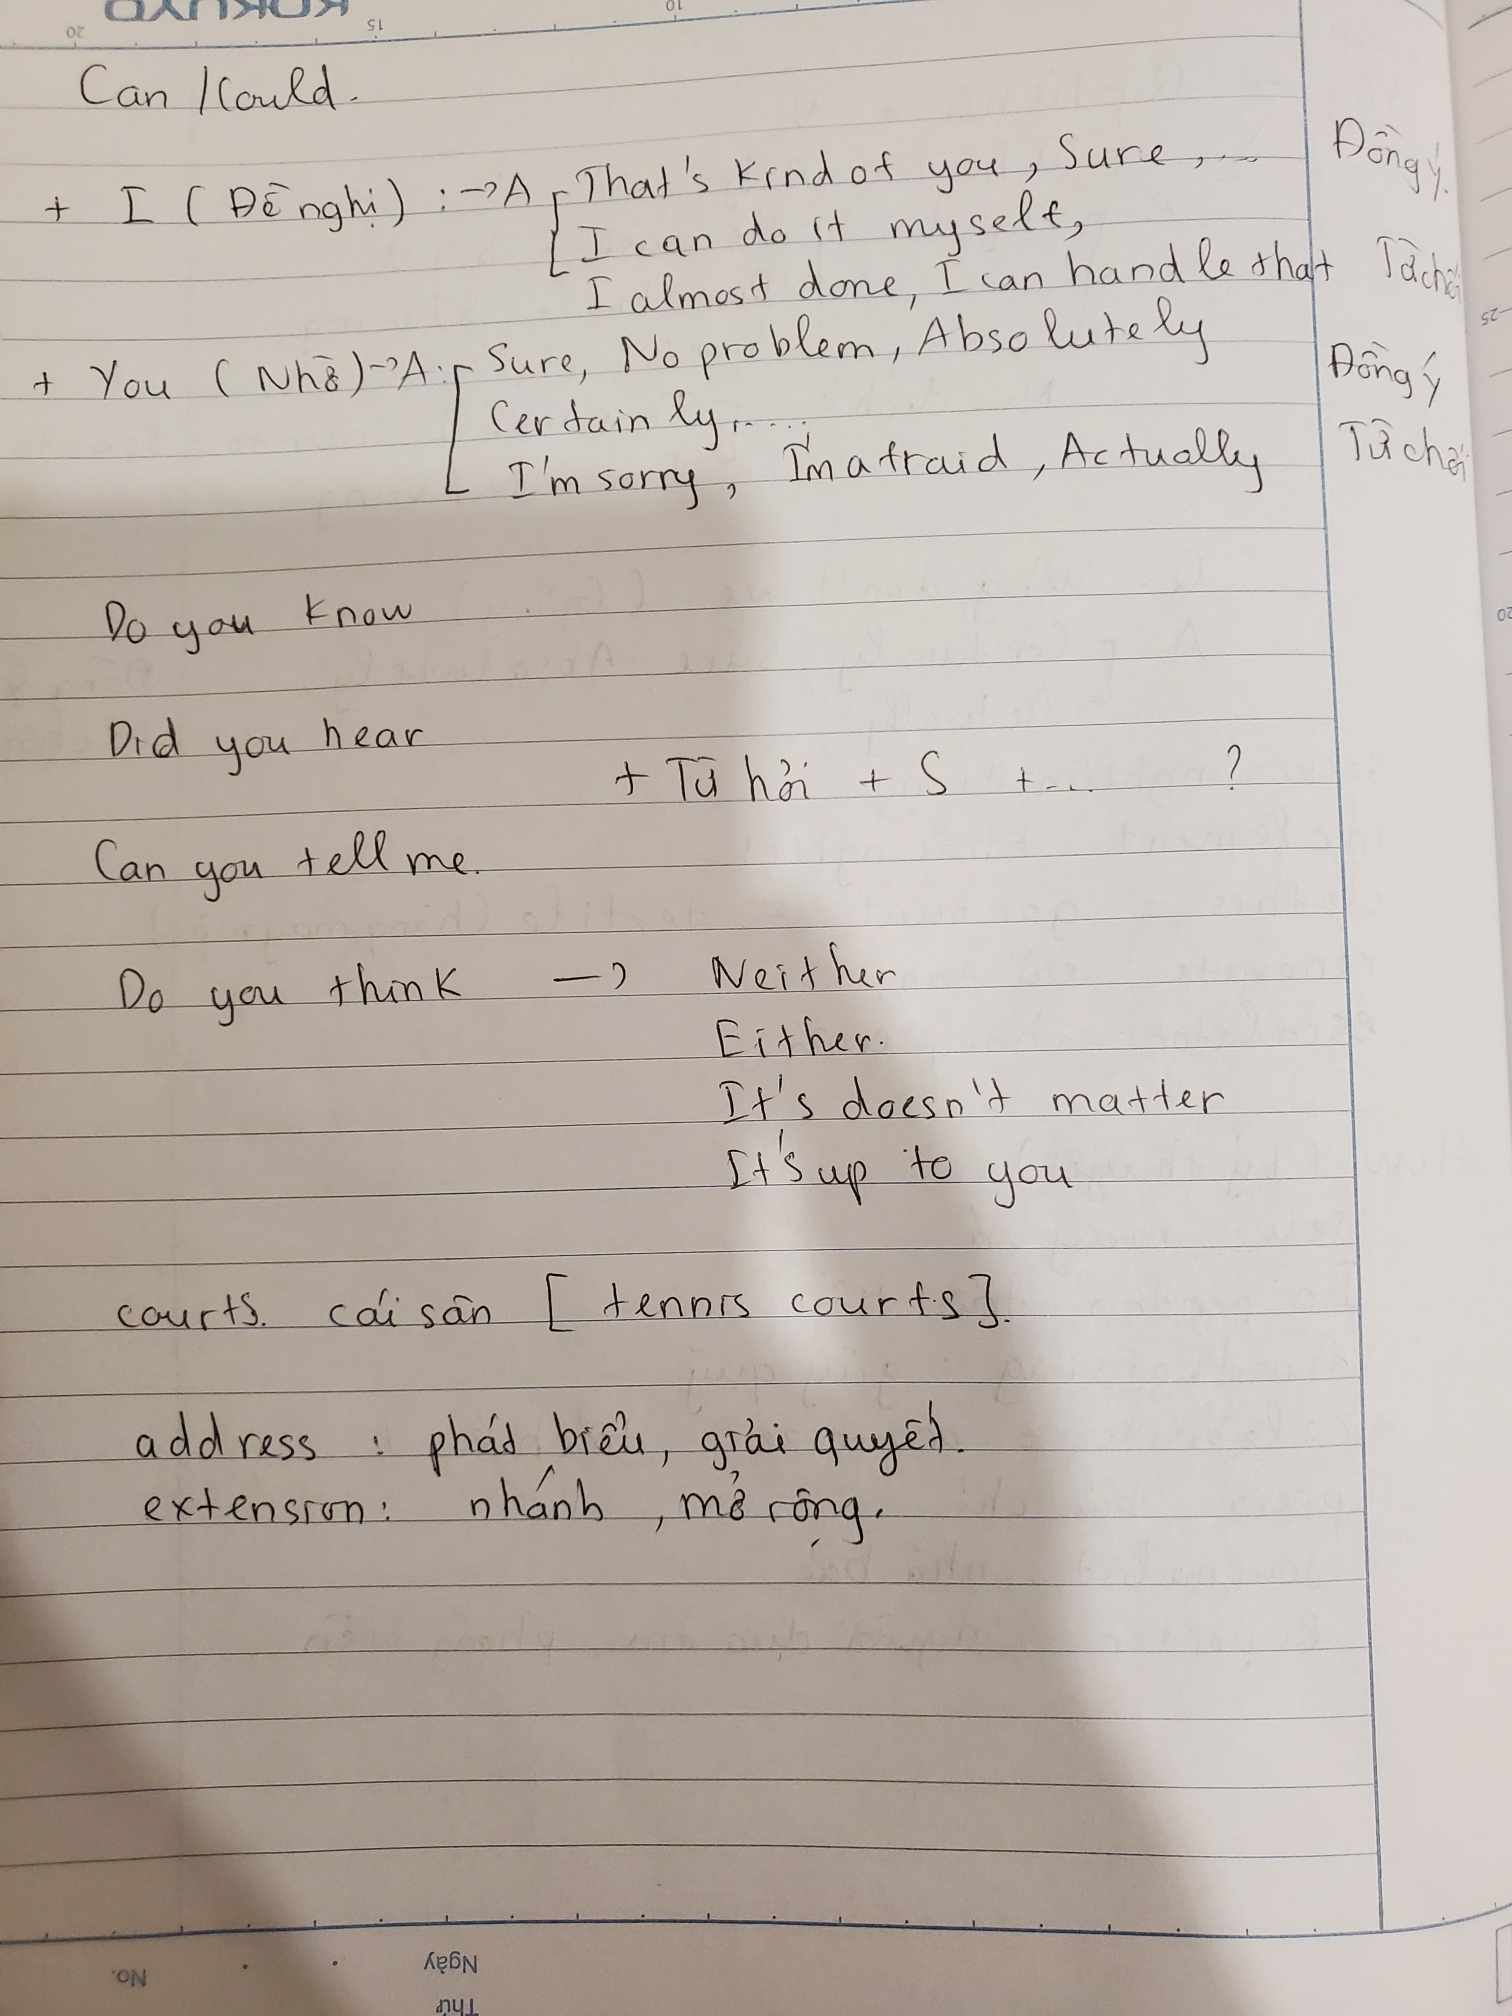 KOKUYO
20 15 10
Can / Could.
+ I (Đề nghị) : → A [ That's kind of you, Sure, ... Đồng ý.
I can do it myself,
I almost done, I can handle that Từ chối
+ You (Nhờ) → A: [ Sure, No problem, Absolutely Đồng ý
Certainly, .....
I'm sorry, I'm afraid, Actually Từ chối
Do you know
Did you hear
+ Từ hỏi + S + ... ?
Can you tell me.
Do you think → Neither
Either.
It's doesn't matter
It's up to you
courts. cái sân [ tennis courts ].
address : phát biểu, giải quyết.
extension : nhánh, mở rộng.
No. Ngày
Thứ
25
20